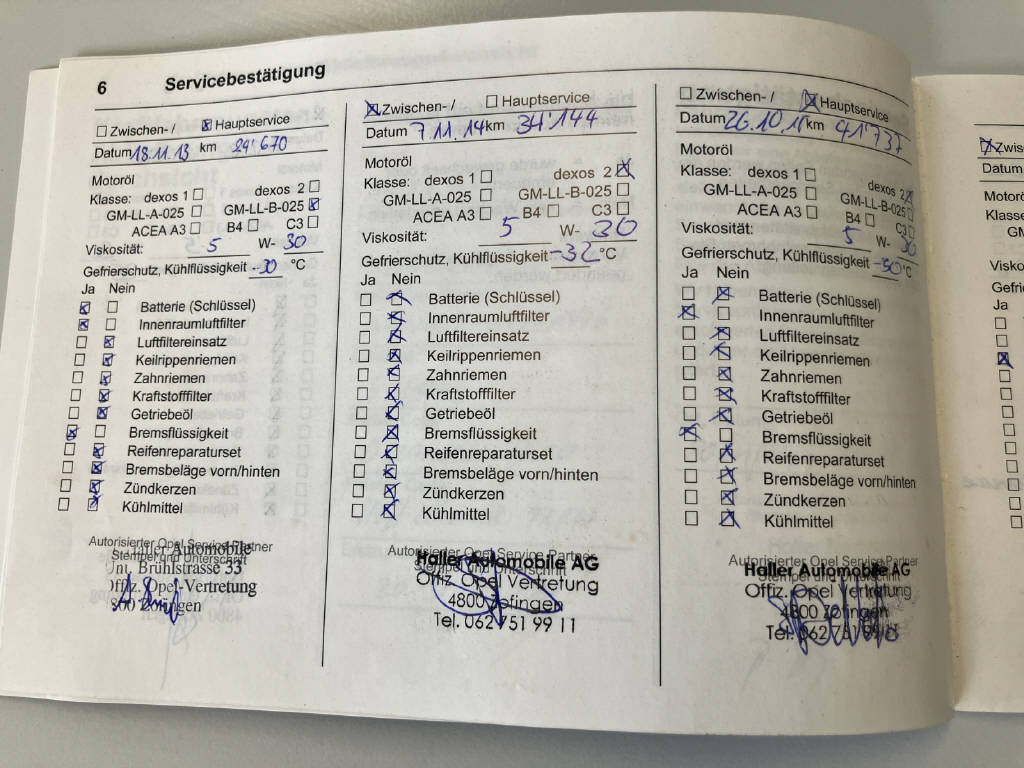 6 Servicebestätigung
Zwischen- / Hauptservice
Datum 18.11.13 km 29'670
Motoröl
Klasse: dexos 1 dexos 2
GM-LL-A-025 GM-LL-B-025
ACEA A3 B4 C3
Viskosität: 5 W- 30
Gefrierschutz, Kühlflüssigkeit -30 °C
Ja Nein
Batterie (Schlüssel)
Innenraumluftfilter
Luftfiltereinsatz
Keilrippenriemen
Zahnriemen
Kraftstofffilter
Getriebeöl
Bremsflüssigkeit
Reifenreparaturset
Bremsbeläge vorn/hinten
Zündkerzen
Kühlmittel
Autorisierter Opel Service Partner
Stempel und Unterschrift
Automobile
Brühlstrasse 33
Offiz. Opel-Vertretung
Zofingen
Zwischen- / Hauptservice
Datum 7.11.14 km 34'144
Motoröl
Klasse: dexos 1 dexos 2
GM-LL-A-025 GM-LL-B-025
ACEA A3 B4 C3
Viskosität: 5 W- 30
Gefrierschutz, Kühlflüssigkeit -32 °C
Ja Nein
Batterie (Schlüssel)
Innenraumluftfilter
Luftfiltereinsatz
Keilrippenriemen
Zahnriemen
Kraftstofffilter
Getriebeöl
Bremsflüssigkeit
Reifenreparaturset
Bremsbeläge vorn/hinten
Zündkerzen
Kühlmittel
Autorisierter Opel Service Partner
Stempel und Unterschrift
Haller Automobile AG
Offiz. Opel Vertretung
4800 Zofingen
Tel. 062 751 99 11
Zwischen- / Hauptservice
Datum km 41'737
Motoröl
Klasse: dexos 1 dexos 2
GM-LL-A-025 GM-LL-B-025
ACEA A3 B4 C3
Viskosität: 5 W- 30
Gefrierschutz, Kühlflüssigkeit -30 °C
Ja Nein
Batterie (Schlüssel)
Innenraumluftfilter
Luftfiltereinsatz
Keilrippenriemen
Zahnriemen
Kraftstofffilter
Getriebeöl
Bremsflüssigkeit
Reifenreparaturset
Bremsbeläge vorn/hinten
Zündkerzen
Kühlmittel
Autorisierter Opel Service Partner
Stempel und Unterschrift
Haller Automobile AG
Offiz. Opel Vertretung
4800 Zofingen
Tel. 062 751 99 11
Zwis
Datum
Motorö
Klasse
GM
Visko
Gefri
Ja